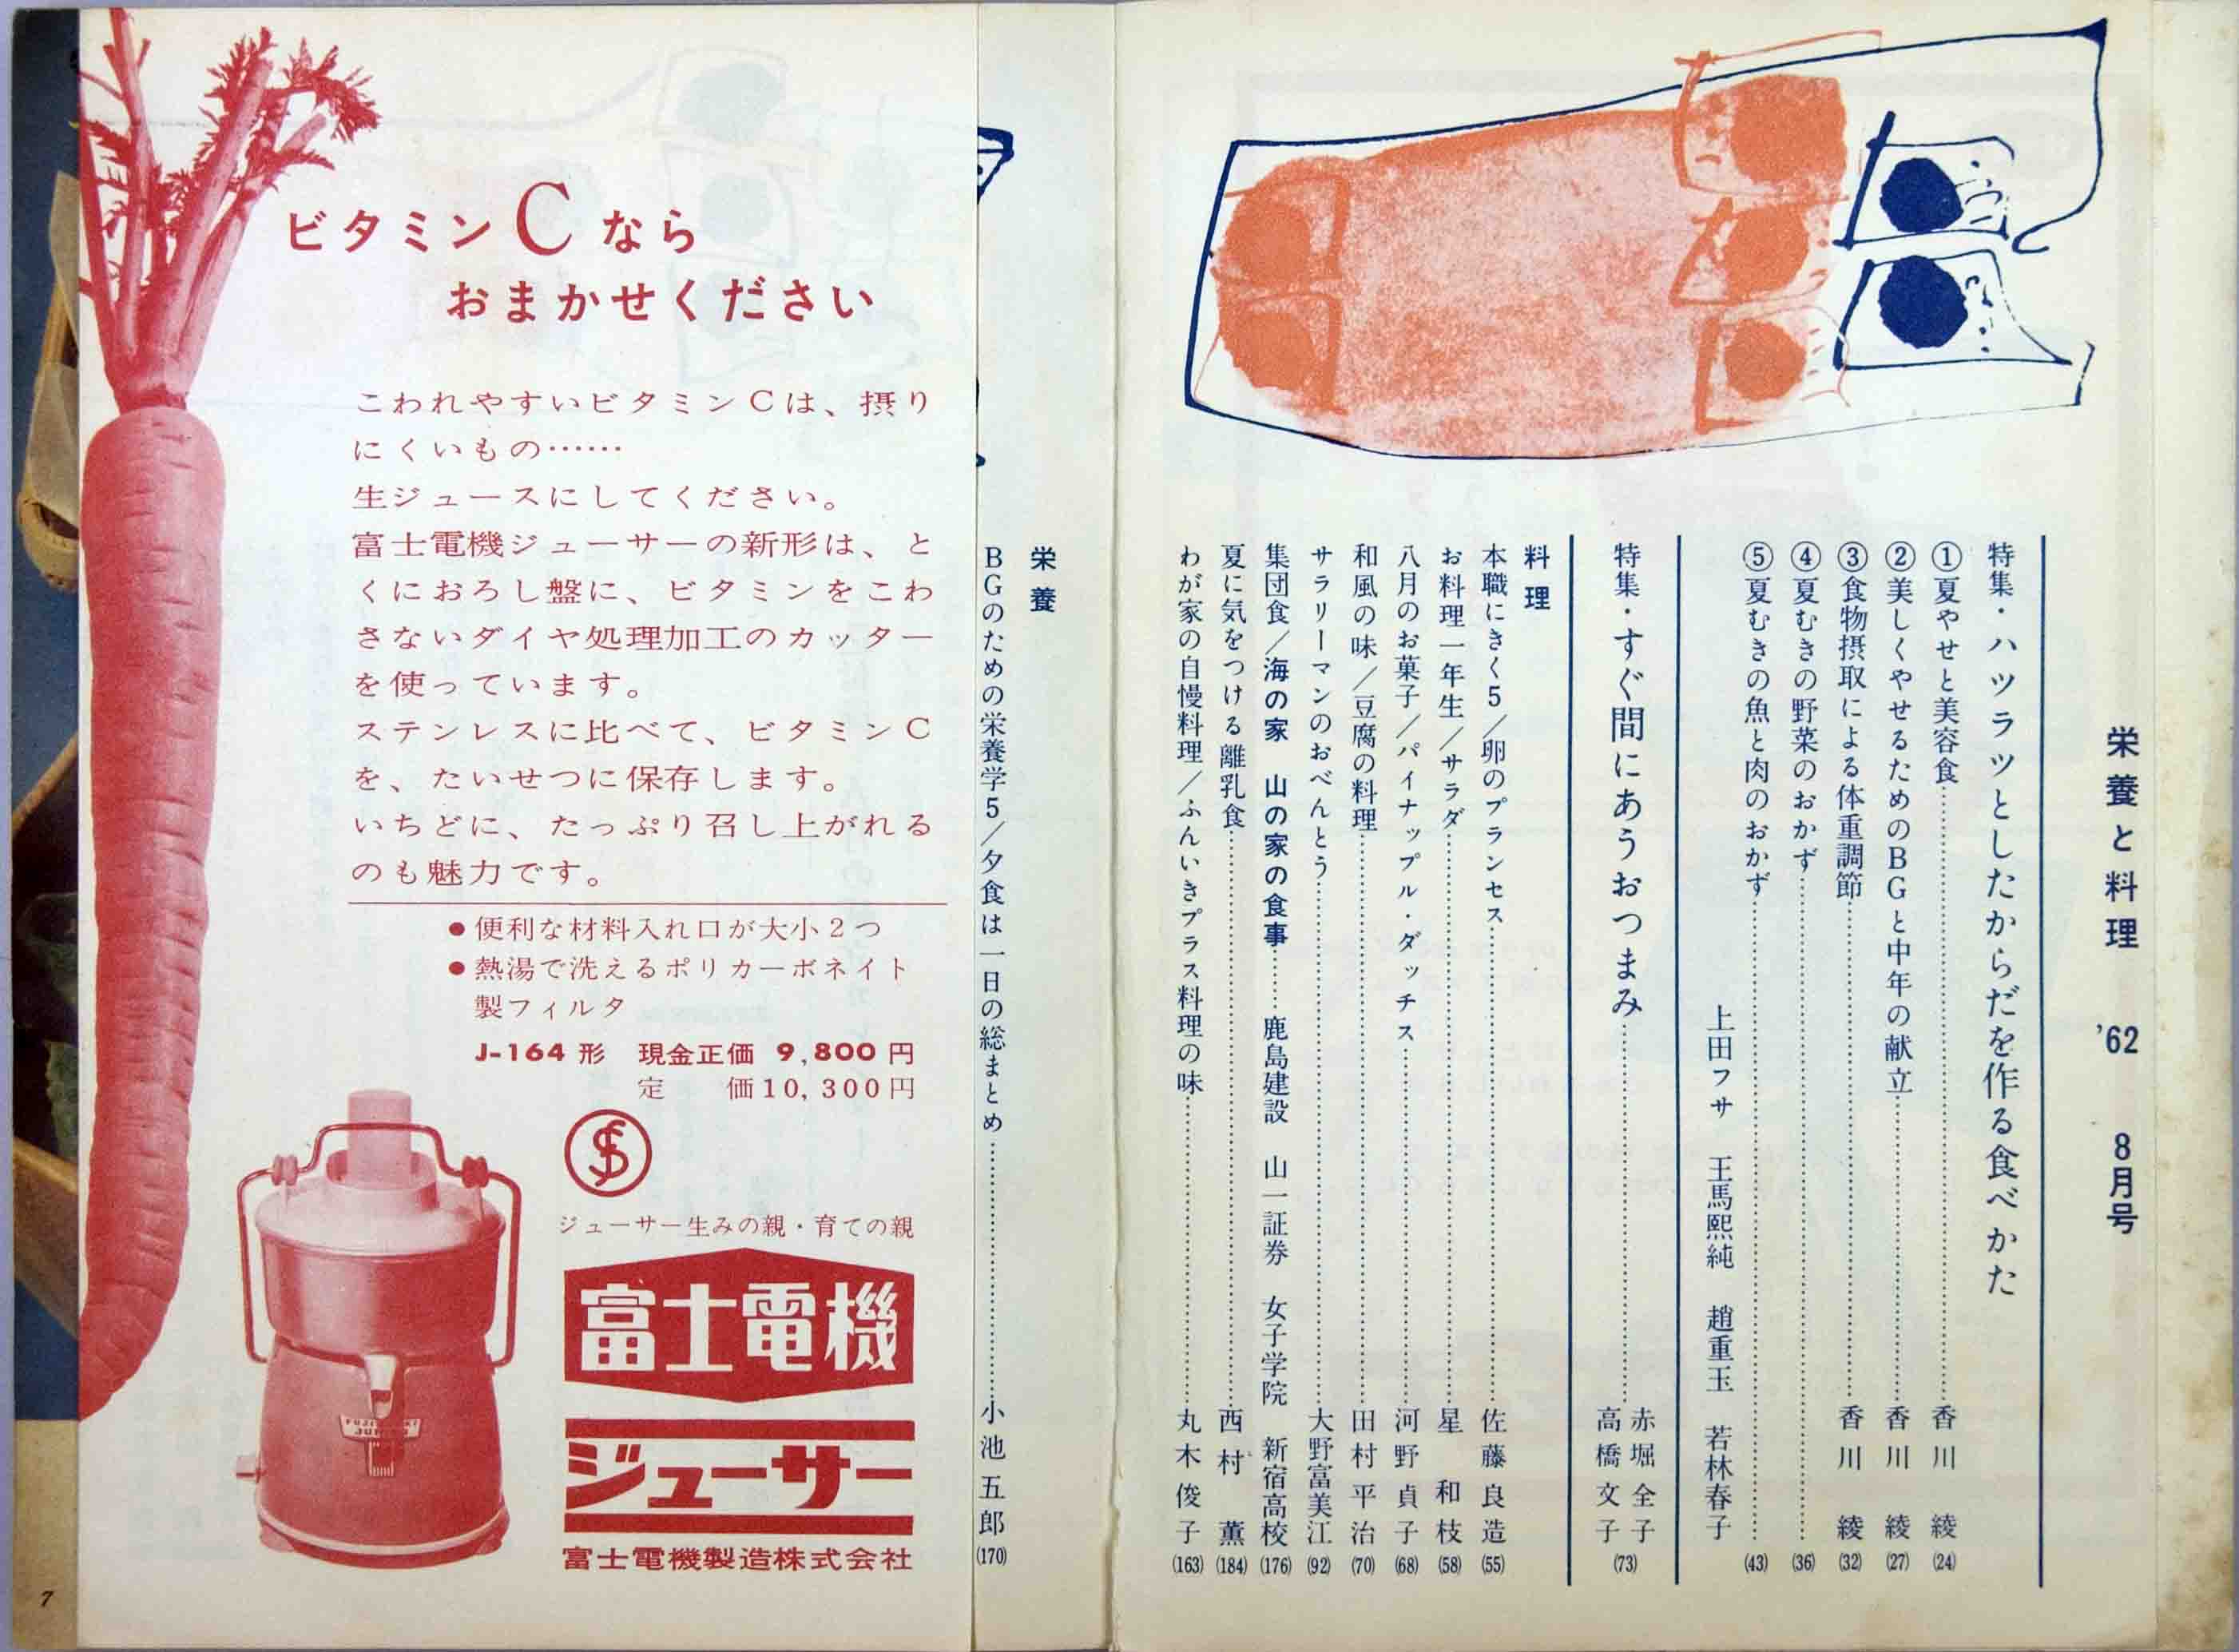 栄養と料理 '62 8月号
特集・ハツラツとしたからだを作る食べかた
①夏やせと美容食……香川 綾(24)
②美しくやせるためのBGと中年の献立……香川 綾(27)
③食物摂取による体重調節……香川 綾(32)
④夏むきの野菜のおかず……(36)
⑤夏むきの魚と肉のおかず……(43)
上田フサ 王馬熙純 趙重玉 若林春子
特集・すぐ間にあうおつまみ……赤堀全子 高橋文子(73)
料理
本職にきく5/卵のプランセス……佐藤良造(55)
お料理一年生/サラダ……星 和枝(58)
八月のお菓子/パイナップル・ダッチス……河野貞子(68)
和風の味/豆腐の料理……田村平治(70)
サラリーマンのおべんとう……大野富美江(92)
集団食/海の家 山の家の食事……鹿島建設 山一証券 女子学院 新宿高校(176)
夏に気をつける離乳食……西村 薫(184)
わが家の自慢料理/ふんいきプラス料理の味……丸木俊子(163)
栄養
BGのための栄養学5/夕食は一日の総まとめ……小池五郎(170)
ビタミンCなら
おまかせください
こわれやすいビタミンCは、摂り
にくいもの……
生ジュースにしてください。
富士電機ジューサーの新形は、と
くにおろし盤に、ビタミンをこわ
さないダイヤ処理加工のカッター
を使っています。
ステンレスに比べて、ビタミンC
を、たいせつに保存します。
いちどに、たっぷり召し上がれる
のも魅力です。
●便利な材料入れ口が大小2つ
●熱湯で洗えるポリカーボネイト
製フィルタ
J-164形 現金正価 9,800円
定 価10,300円
ジューサー生みの親・育ての親
富士電機
ジューサー
富士電機製造株式会社
7